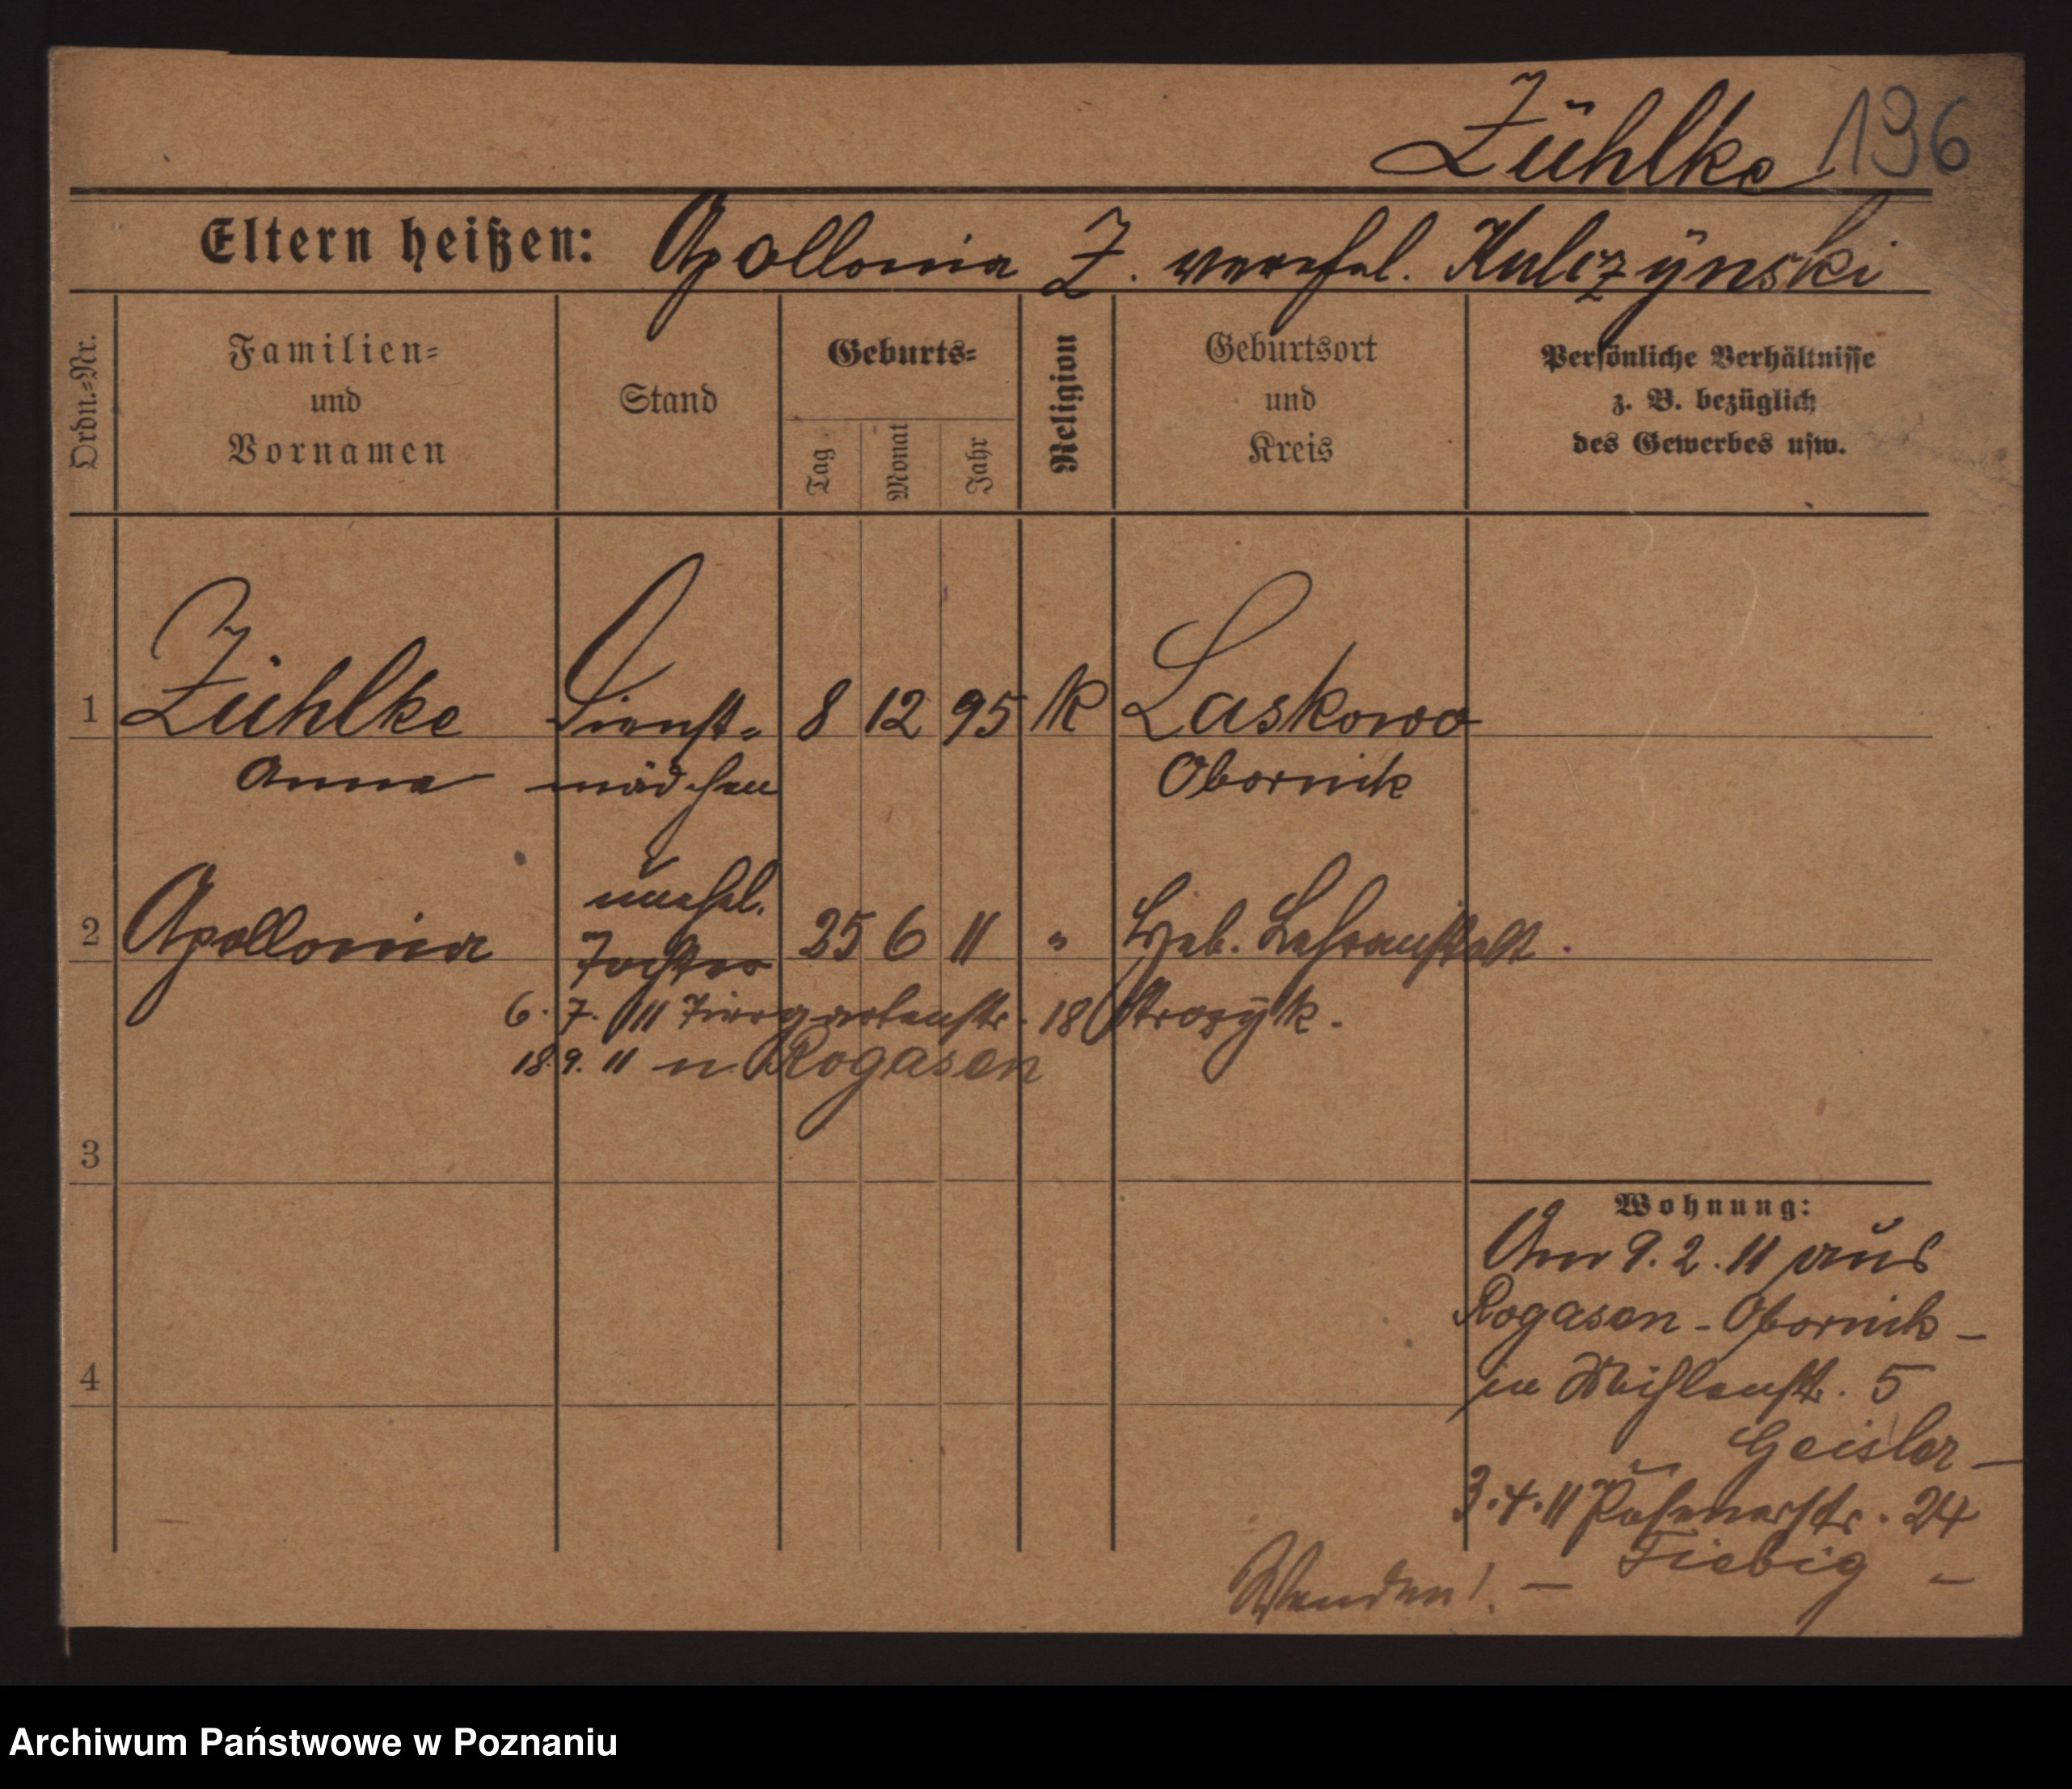 Zühlke 196
Eltern heißen: Apollonia Z. verehel. Kulczÿnski
Ordn.=Nr.
Familien=
und
Vornamen
Stand
Geburts=
Tag
Monat
Jahr
Religion
Geburtsort
und
Kreis
Persönliche Verhältnisse
z. B. bezüglich
des Gewerbes usw.
1 Zühlke Dienst= 8 12 95 K Laskowo
Anna mädchen Obornik
unehel.
2 Apollonia Tochter 25 6 11 " Heb. Lehranstalt
6. 7. 11 Tiergartenstr. 18
18. 9. 11 n Rogasen
3
Wohnung:
Am 9. 2. 11 aus
Rogasen - Obornik -
in Mühlenstr. 5
4
Geisler -
3. 4. 11 Posenerstr. 24
- Fiebig -
Wenden!
Archiwum Państwowe w Poznaniu